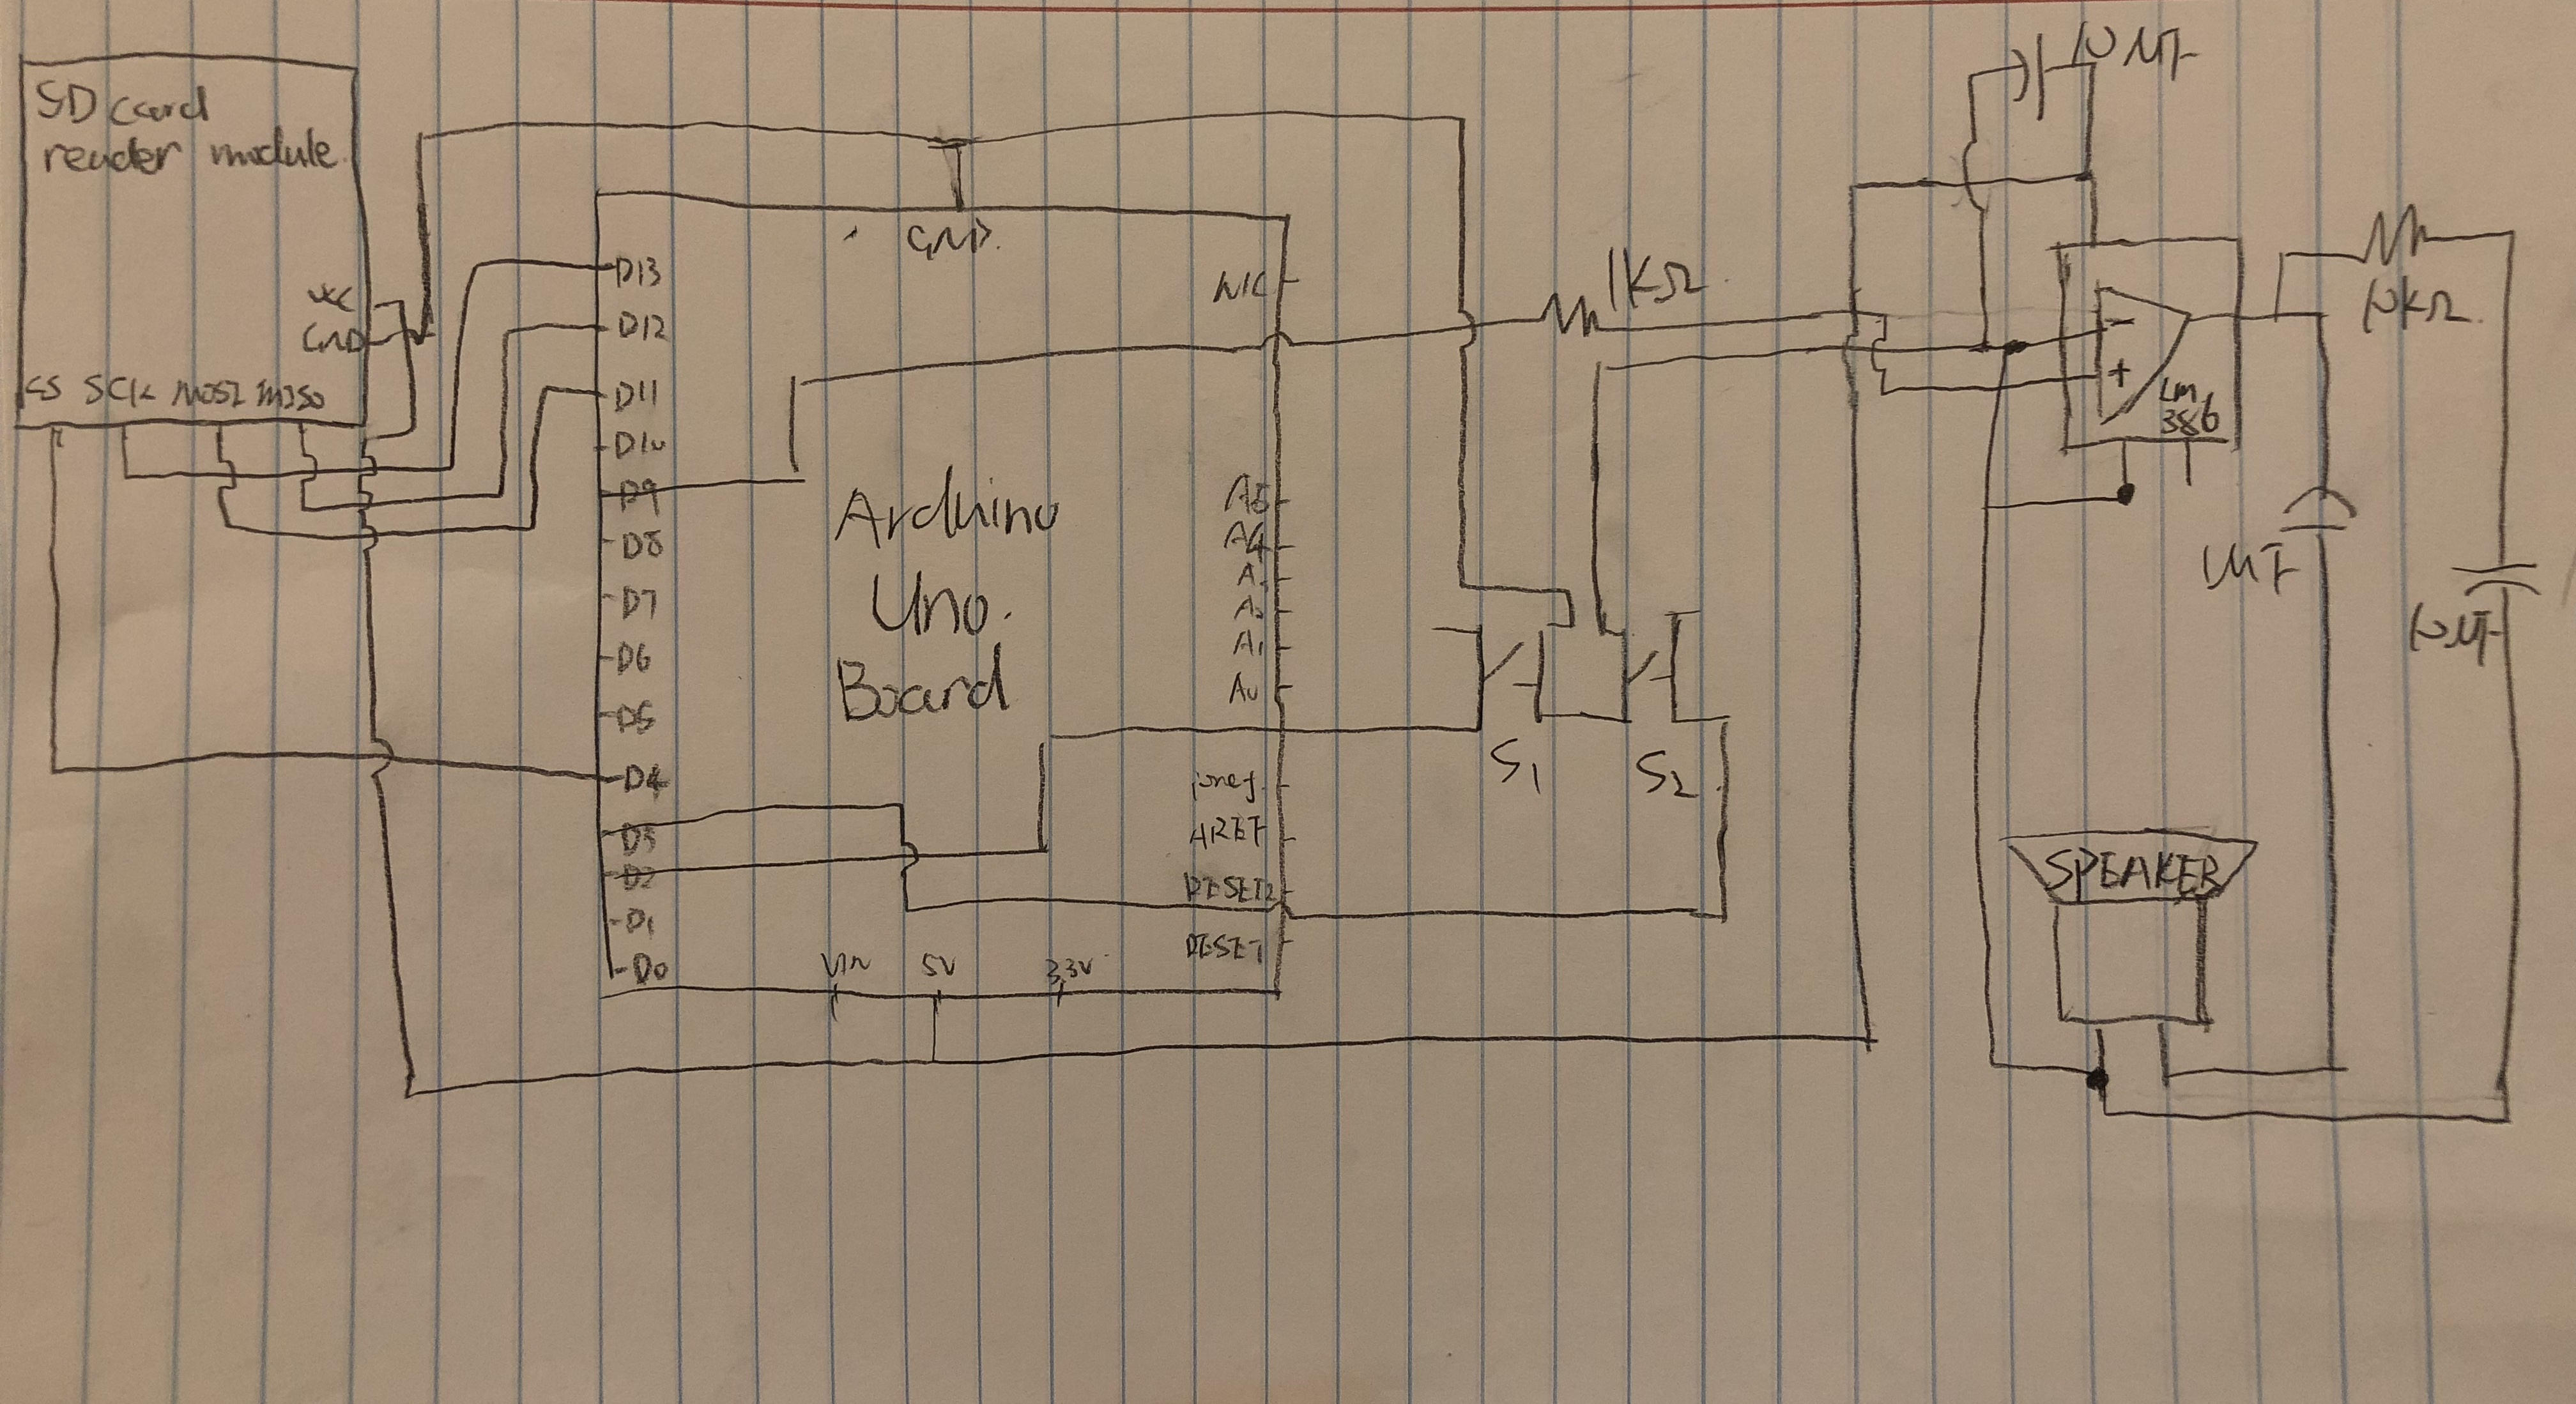 SD card
reader module
VCC
GND
CS SCK MOSI MISO
GND
D13
D12
D11
D10
D9
D8
D7
D6
D5
D4
D3
D2
D1
D0
Arduino
Uno.
Board
N/C
A5
A4
A1
A0
AREF
RESET2
RESET
VIN 5V 3.3V
1KΩ
S1 S2
10 MF
LM
386
10KΩ
10MF
SPEAKER